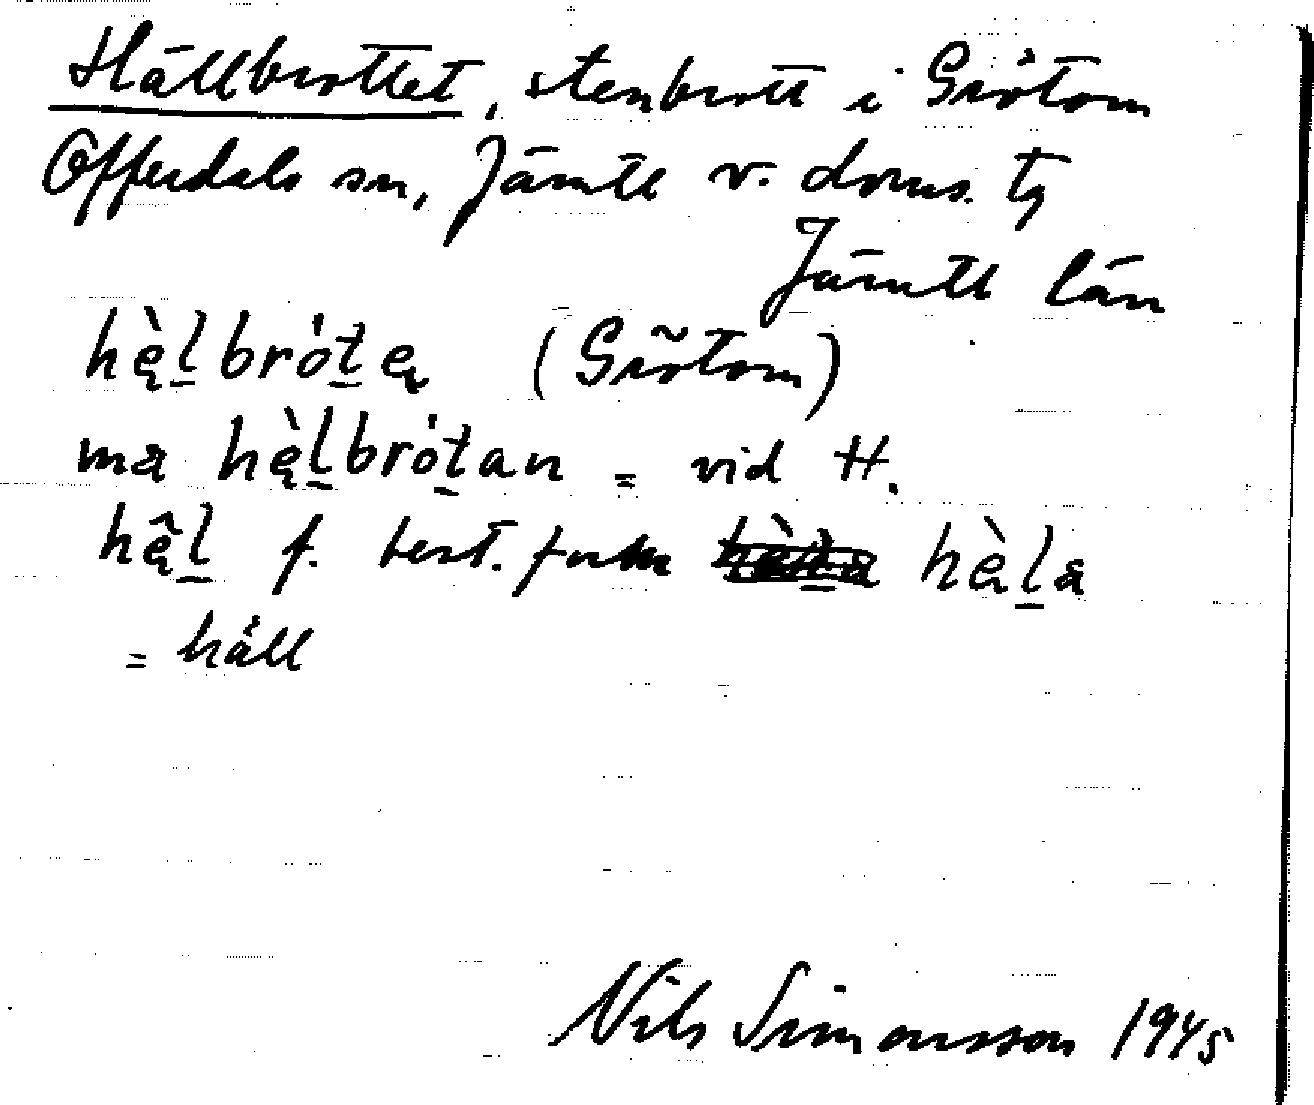 Hällbrottet, stenbrott i Grötom
Offerdals sn, Jämtl v. doms. tg
Jämtl län
hę̀l̠brót̠eų (Grötom)
ma hę̀l̠brót̠an = vid H.
hę̂l̠ f. best. form hę̀l̠a
= häll
Nils Simonsson 1945